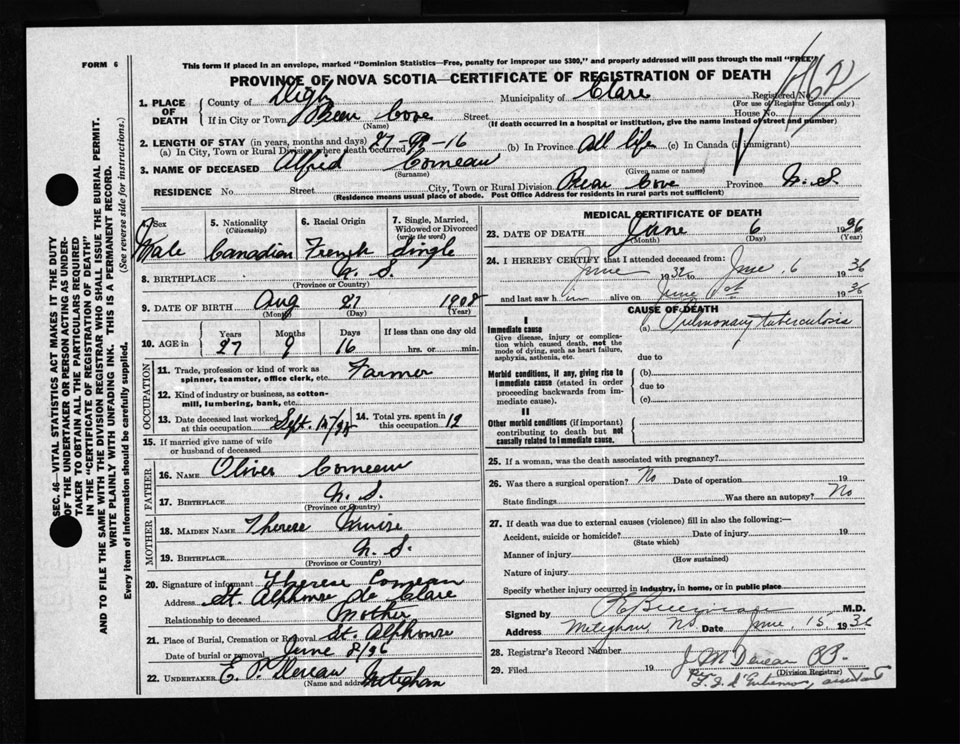 FORM 6
This form if placed in an envelope, marked "Dominion Statistics—Free, penalty for improper use $300," and properly addressed will pass through the mail "FREE"
PROVINCE OF NOVA SCOTIA—CERTIFICATE OF REGISTRATION OF DEATH
1. PLACE OF DEATH
County of Digby Municipality of Clare Registered No.
(For use of Registrar General only)
If in City or Town Bear Cove Street House No.
(Name) (If death occurred in a hospital or institution, give the name instead of street and number)
2. LENGTH OF STAY (in years, months and days)
(a) In City, Town or Rural Division where death occurred 27-9-16 (b) In Province All life (c) In Canada (if immigrant)
3. NAME OF DECEASED Alfred Comeau
(Surname) (Given name or names)
RESIDENCE No. Street City, Town or Rural Division Bear Cove Province N.S.
(Residence means usual place of abode. Post Office Address for residents in rural parts not sufficient)
Sex 5. Nationality (Citizenship) 6. Racial Origin 7. Single, Married, Widowed or Divorced (write the word)
Male Canadian French Single
8. BIRTHPLACE N.S.
(Province or Country)
9. DATE OF BIRTH Aug 27 1908
(Month) (Day) (Year)
10. AGE in Years Months Days If less than one day old
27 9 16 hrs. or min.
OCCUPATION
11. Trade, profession or kind of work as spinner, teamster, office clerk, etc. Farmer
12. Kind of industry or business, as cotton-mill, lumbering, bank, etc.
13. Date deceased last worked at this occupation Sept. 14. Total yrs. spent in this occupation 12
15. If married give name of wife or husband of deceased
FATHER
16. NAME Oliver Comeau
17. BIRTHPLACE N.S.
(Province or Country)
MOTHER
18. MAIDEN NAME Therese Muise
19. BIRTHPLACE N.S.
(Province or Country)
20. Signature of informant Therese Comeau
Address St. Alphonse de Clare
Relationship to deceased Mother
21. Place of Burial, Cremation or Removal St. Alphonse
Date of burial or removal June 8/36
22. UNDERTAKER E. P. Deveau Meteghan
(Name and address)
MEDICAL CERTIFICATE OF DEATH
23. DATE OF DEATH June 6 1936
(Month) (Day) (Year)
24. I HEREBY CERTIFY that I attended deceased from:
June 1932 to June 6 1936
and last saw him alive on June 1st 1936
CAUSE OF DEATH
I
Immediate cause
Give disease, injury or complication which caused death, not the mode of dying, such as heart failure, asphyxia, asthenia, etc.
(a) Pulmonary tuberculosis
due to
Morbid conditions, if any, giving rise to immediate cause (stated in order proceeding backwards from immediate cause).
(b)
due to
(c)
II
Other morbid conditions (if important) contributing to death but not causally related to immediate cause.
25. If a woman, was the death associated with pregnancy?
26. Was there a surgical operation? No Date of operation 19
State findings Was there an autopsy? No
27. If death was due to external causes (violence) fill in also the following:—
Accident, suicide or homicide? Date of injury 19
(State which)
Manner of injury
(How sustained)
Nature of injury
Specify whether injury occurred in industry, in home, or in public place
Signed by M.D.
Address Meteghan, N.S. Date June 15, 1936
28. Registrar's Record Number
29. Filed 19 J M Deveau
(Division Registrar)
SEC. 46—VITAL STATISTICS ACT MAKES IT THE DUTY
OF THE UNDERTAKER OR PERSON ACTING AS UNDER-
TAKER TO OBTAIN ALL THE PARTICULARS REQUIRED
IN THE "CERTIFICATE OF REGISTRATION OF DEATH"
AND TO FILE THE SAME WITH THE DIVISION REGISTRAR WHO SHALL ISSUE THE BURIAL PERMIT.
WRITE PLAINLY WITH UNFADING INK. THIS IS A PERMANENT RECORD.
Every item of information should be carefully supplied. (See reverse side for instructions.)